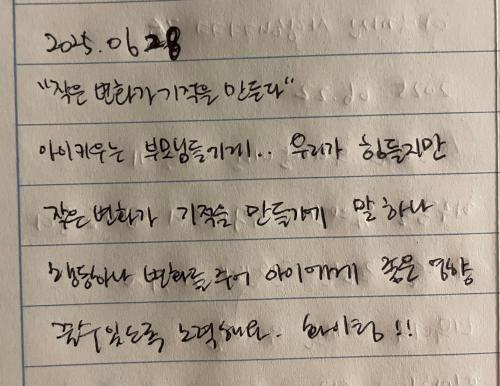 2025.06 28
"작은 변화가 기적을 만든다"
아이키우는 부모님들에게.. 우리가 힘들지만
작은변화가 기적을 만들기에 말 하나
행동하나 변화를 주어 아이에게 좋은 영향
줄수있도록 노력해요. 화이팅!!